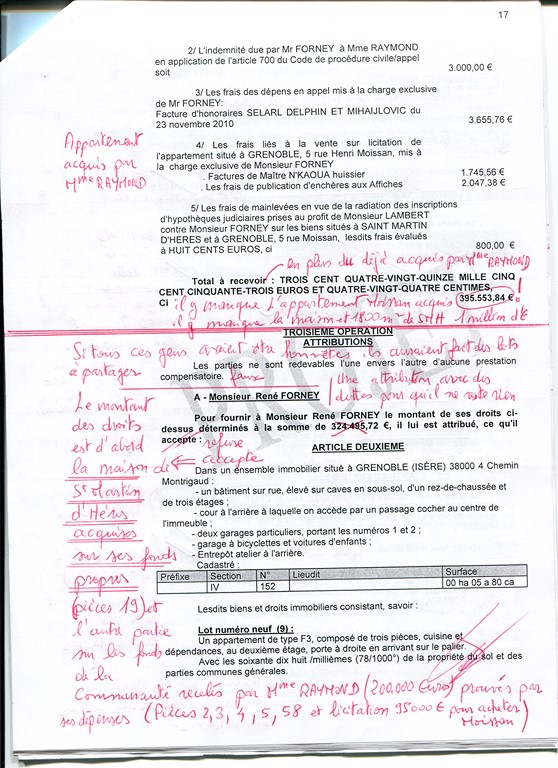 17
2/ L'indemnité due par Mr FORNEY à Mme RAYMOND
en application de l'article 700 du Code de procédure civile/appel
soit 3.000,00 €
3/ Les frais des dépens en appel mis à la charge exclusive
de Mr FORNEY:
Facture d'honoraires SELARL DELPHIN ET MIHAJLOVIC du
23 novembre 2010 3.655,76 €
Appartement
acquis par
Mme RAYMOND
4/ Les frais liés à la vente sur licitation de
l'appartement situé à GRENOBLE, 5 rue Henri Moissan, mis à
la charge exclusive de Monsieur FORNEY
. Factures de Maître N'KAOUA huissier 1.745,56 €
. Les frais de publication d'enchères aux Affiches 2.047,38 €
5/ Les frais de mainlevées en vue de la radiation des inscriptions
d'hypothèques judiciaires prises au profit de Monsieur LAMBERT
contre Monsieur FORNEY sur les biens situés à SAINT MARTIN
D'HERES et à GRENOBLE, 5 rue Moissan, lesdits frais évalués
à HUIT CENTS EUROS, ci 800,00 €
en plus du déjà acquis par Mme RAYMOND
Total à recevoir : TROIS CENT QUATRE-VINGT-QUINZE MILLE CINQ
CENT CINQUANTE-TROIS EUROS ET QUATRE-VINGT-QUATRE CENTIMES,
Ci 395.553,84 € !
il y manque l'appartement Moissan acquis
il y manque la maison et 1800m² de SMH 1 million d'€
TROISIEME OPERATION
ATTRIBUTIONS
Si tous ces gens avaient été honnêtes ils auraient fait des lots
à partager
Les parties ne sont redevables l'une envers l'autre d'aucune prestation
compensatoire. faux
A - Monsieur René FORNEY
! Une attribution avec des
dettes pour qu'il ne reste rien
Pour fournir à Monsieur René FORNEY le montant de ses droits ci-
dessus déterminés à la somme de 324.495,72 €, il lui est attribué, ce qu'il
accepte : refuse
accepte
Le montant
des droits
est d'abord
la maison de
St Martin
d'Hères
acquises
sur ses fonds
propres
(pièces 19) et
l'autre partie
sur les fonds
de la
Communauté recelés par Mme RAYMOND (200.000 Euros) prouvés par
ses dépenses (Pièces 2, 3, 4, 5, 58 et licitation 95000 € pour acheter
Moissan)
ARTICLE DEUXIEME
Dans un ensemble immobilier situé à GRENOBLE (ISÈRE) 38000 4 Chemin
Montrigaud :
- un bâtiment sur rue, élevé sur caves en sous-sol, d'un rez-de-chaussée et
de trois étages ;
- cour à l'arrière à laquelle on accède par un passage cocher au centre de
l'immeuble ;
- deux garages particuliers, portant les numéros 1 et 2 ;
- garage à bicyclettes et voitures d'enfants ;
- Entrepôt atelier à l'arrière.
Cadastré :
Préfixe Section N° Lieudit Surface
IV 152 00 ha 05 a 80 ca
Lesdits biens et droits immobiliers consistant, savoir :
Lot numéro neuf (9) :
Un appartement de type F3, composé de trois pièces, cuisine et
dépendances, au deuxième étage, porte à droite en arrivant sur le palier.
Avec les soixante dix huit /millièmes (78/1000°) de la propriété du sol et des
parties communes générales.